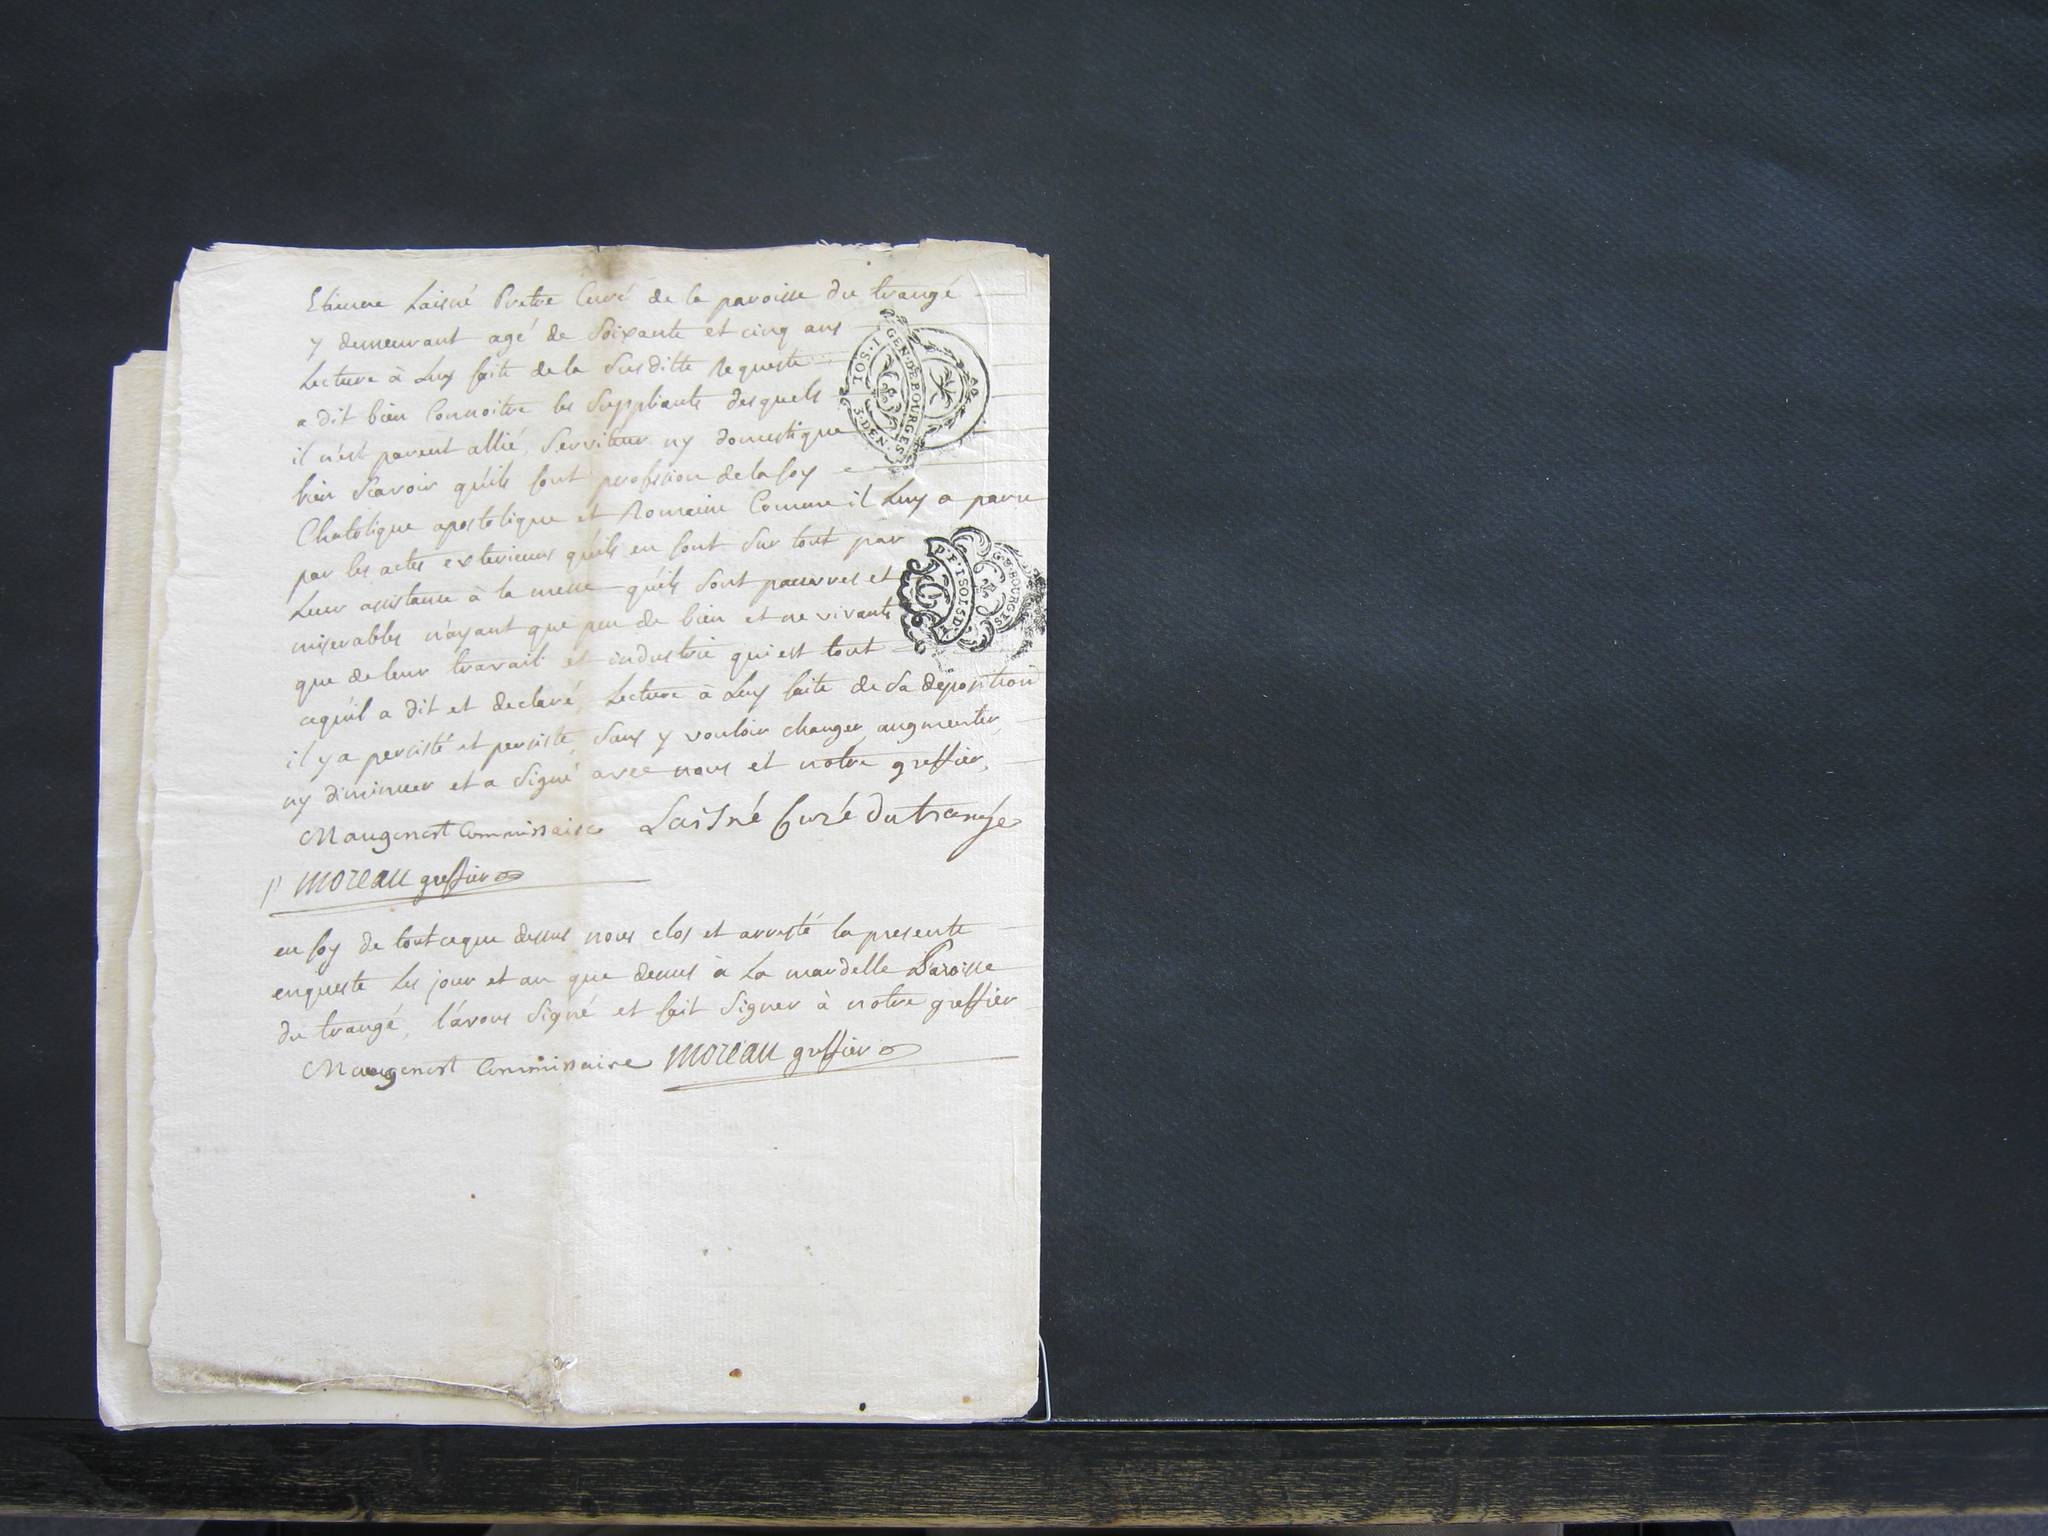 Etienne Laisné Pretre Curé de la paroisse du trangé
y demeurant agé de Soixante et cinq ans
Lecture à Luy faite de la Susditte Requeste
a dit bien Connoitre les Suppliants desquels
il n'est parent allié, Serviteur ny domestique
bien Scavoir qu'ils font profession de la foy
Chatolique apostolique et Romaine Comme il Luy a paru
par les actes exterieurs qu'ils en font Sur tout par
Leur assistance à la messe qu'ils Sont pauvres et
miserables n'ayant que peu de bien et ne vivants
que de leur travail et industrie qui est tout
cequ'il a dit et declaré, Lecture à Luy faite de Sa deposition
il y a percisté et perciste, Sans y vouloir changer, augmenter,
ny diminuer et a Signé avec nous et notre greffier,
Maugenest Commissaire Laisné Curé du trangé
P Moreau greffier
en foy de tout ceque dessus nous clos et arresté la presente
enqueste Les jour et an que dessus à La mardelle Paroisse
du trangé, l'avons Signé et fait Signer à notre greffier
Maugenest Commissaire Moreau greffier
GEN·DE BOURGES
3·DEN·
G·BOURGES